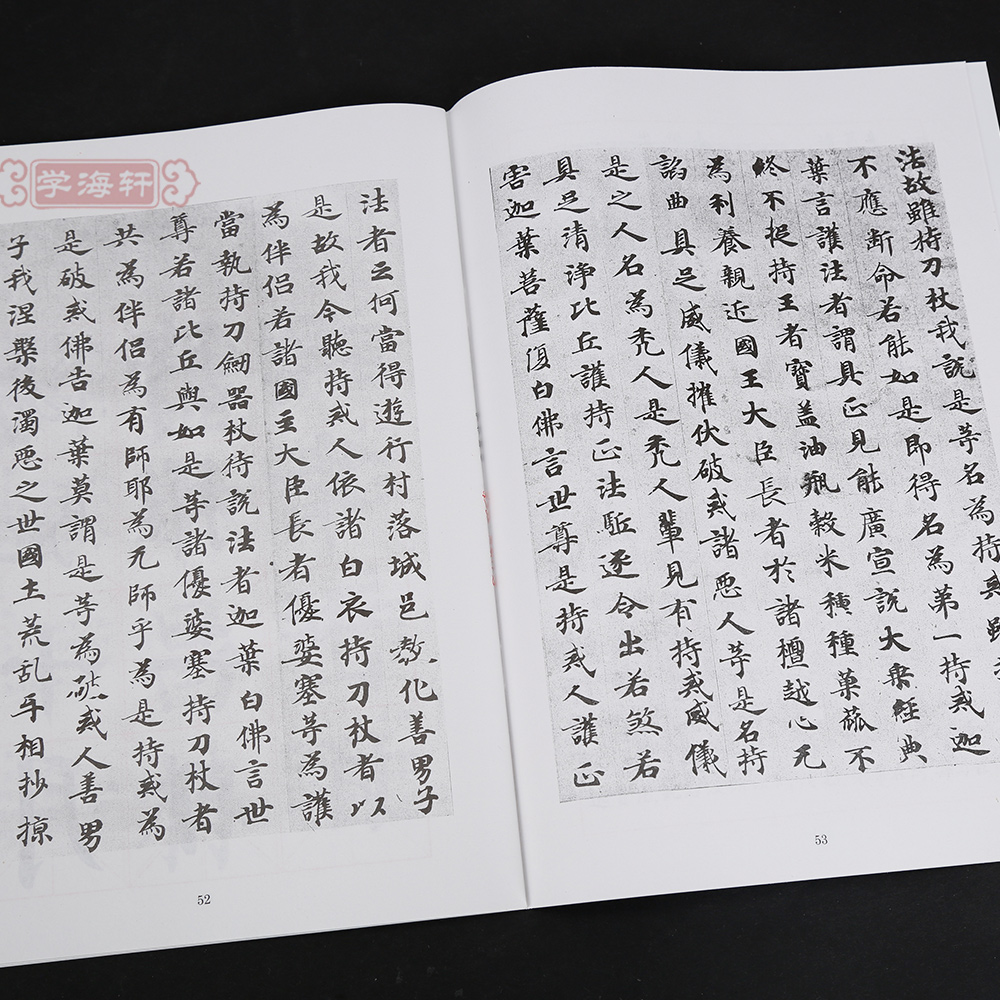 学海轩
法者云何當得遊行村落城邑教化善男子
是故我今聽持戒人依諸白衣持刀杖者以
為伴侶若諸國主大臣長者優婆塞等為護
當執持刀劒器杖侍說法者迦葉白佛言世
尊若諸比丘與如是等諸優婆塞持刀杖者
共為伴侶為有師耶為无師乎為是持戒為
是破戒佛告迦葉莫謂是等為破戒人善男
子我涅槃後濁惡之世國土荒乱互相抄掠
52
法故雖持刀杖我說是等名為持戒雖
不應断命若能如是即得名為第一持戒迦
葉言護法者謂具正見能廣宣說大乗經典
終不捉持王者寶盖油瓶穀米種種菓蓏不
為利養親近國王大臣長者於諸檀越心无
諂曲具足威儀摧伏破戒諸惡人等是名持
是之人名為禿人是禿人輩見有持戒威儀
具足清淨比丘護持正法駈逐令出若煞若
害迦葉菩薩復白佛言世尊是持戒人護正
53